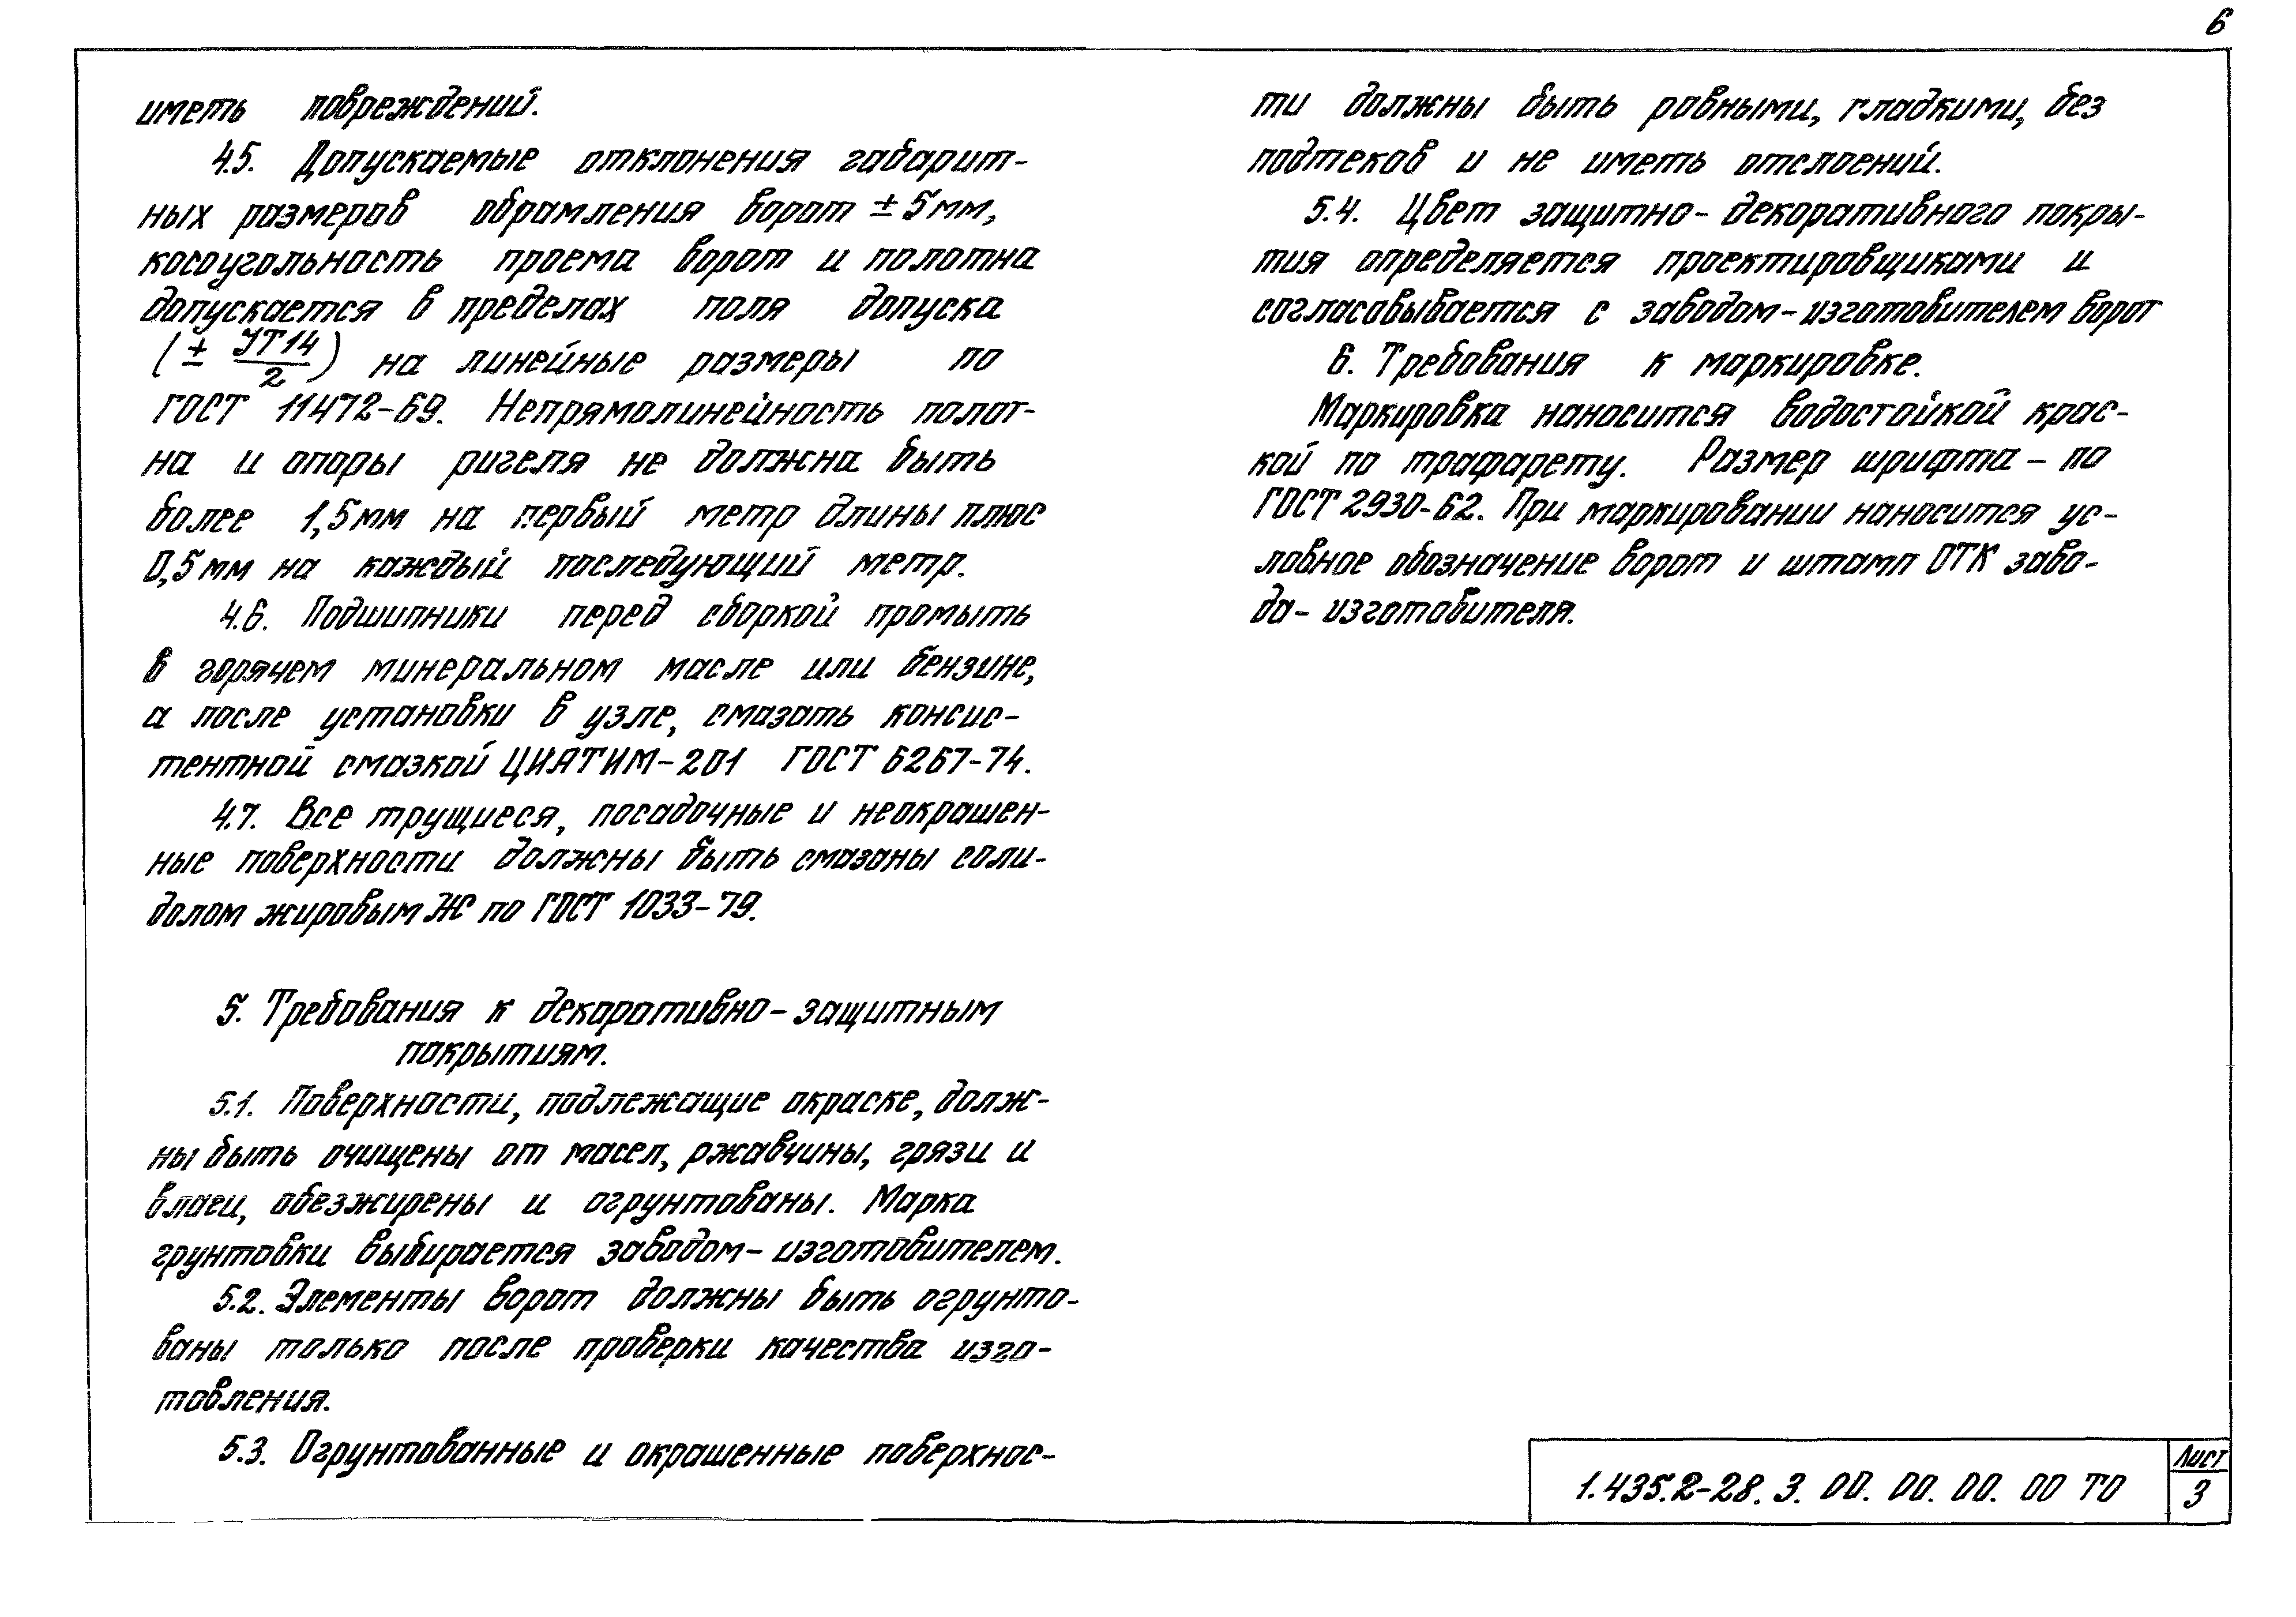 6
иметь повреждений.
4.5. Допускаемые отклонения габарит-
ных размеров обрамления ворот ± 5 мм,
косоугольность проема ворот и полотна
допускается в пределах поля допуска
(± JT14/2) на линейные размеры по
ГОСТ 11472-69. Непрямолинейность полот-
на и опоры ригеля не должна быть
более 1,5 мм на первый метр длины плюс
0,5 мм на каждый последующий метр.
4.6. Подшипники перед сборкой промыть
в горячем минеральном масле или бензине,
а после установки в узле, смазать консис-
тентной смазкой ЦИАТИМ-201 ГОСТ 6267-74.
4.7. Все трущиеся, посадочные и неокрашен-
ные поверхности должны быть смазаны соли-
долом жировым Ж по ГОСТ 1033-79.
5. Требования к декоративно-защитным
покрытиям.
5.1. Поверхности, подлежащие окраске, долж-
ны быть очищены от масел, ржавчины, грязи и
влаги, обезжирены и огрунтованы. Марка
грунтовки выбирается заводом-изготовителем.
5.2. Элементы ворот должны быть огрунто-
ваны только после проверки качества изго-
товления.
5.3. Огрунтованные и окрашенные поверхнос-
ти должны быть ровными, гладкими, без
подтеков и не иметь отслоений.
5.4. Цвет защитно-декоративного покры-
тия определяется проектировщиками и
согласовывается с заводом-изготовителем ворот
6. Требования к маркировке.
Маркировка наносится водостойкой крас-
кой по трафарету. Размер шрифта - по
ГОСТ 2930-62. При маркировании наносится ус-
ловное обозначение ворот и штамп ОТК заво-
да-изготовителя.
1.435.2-28. 3. 00. 00. 00. 00 ТО
Лист
3